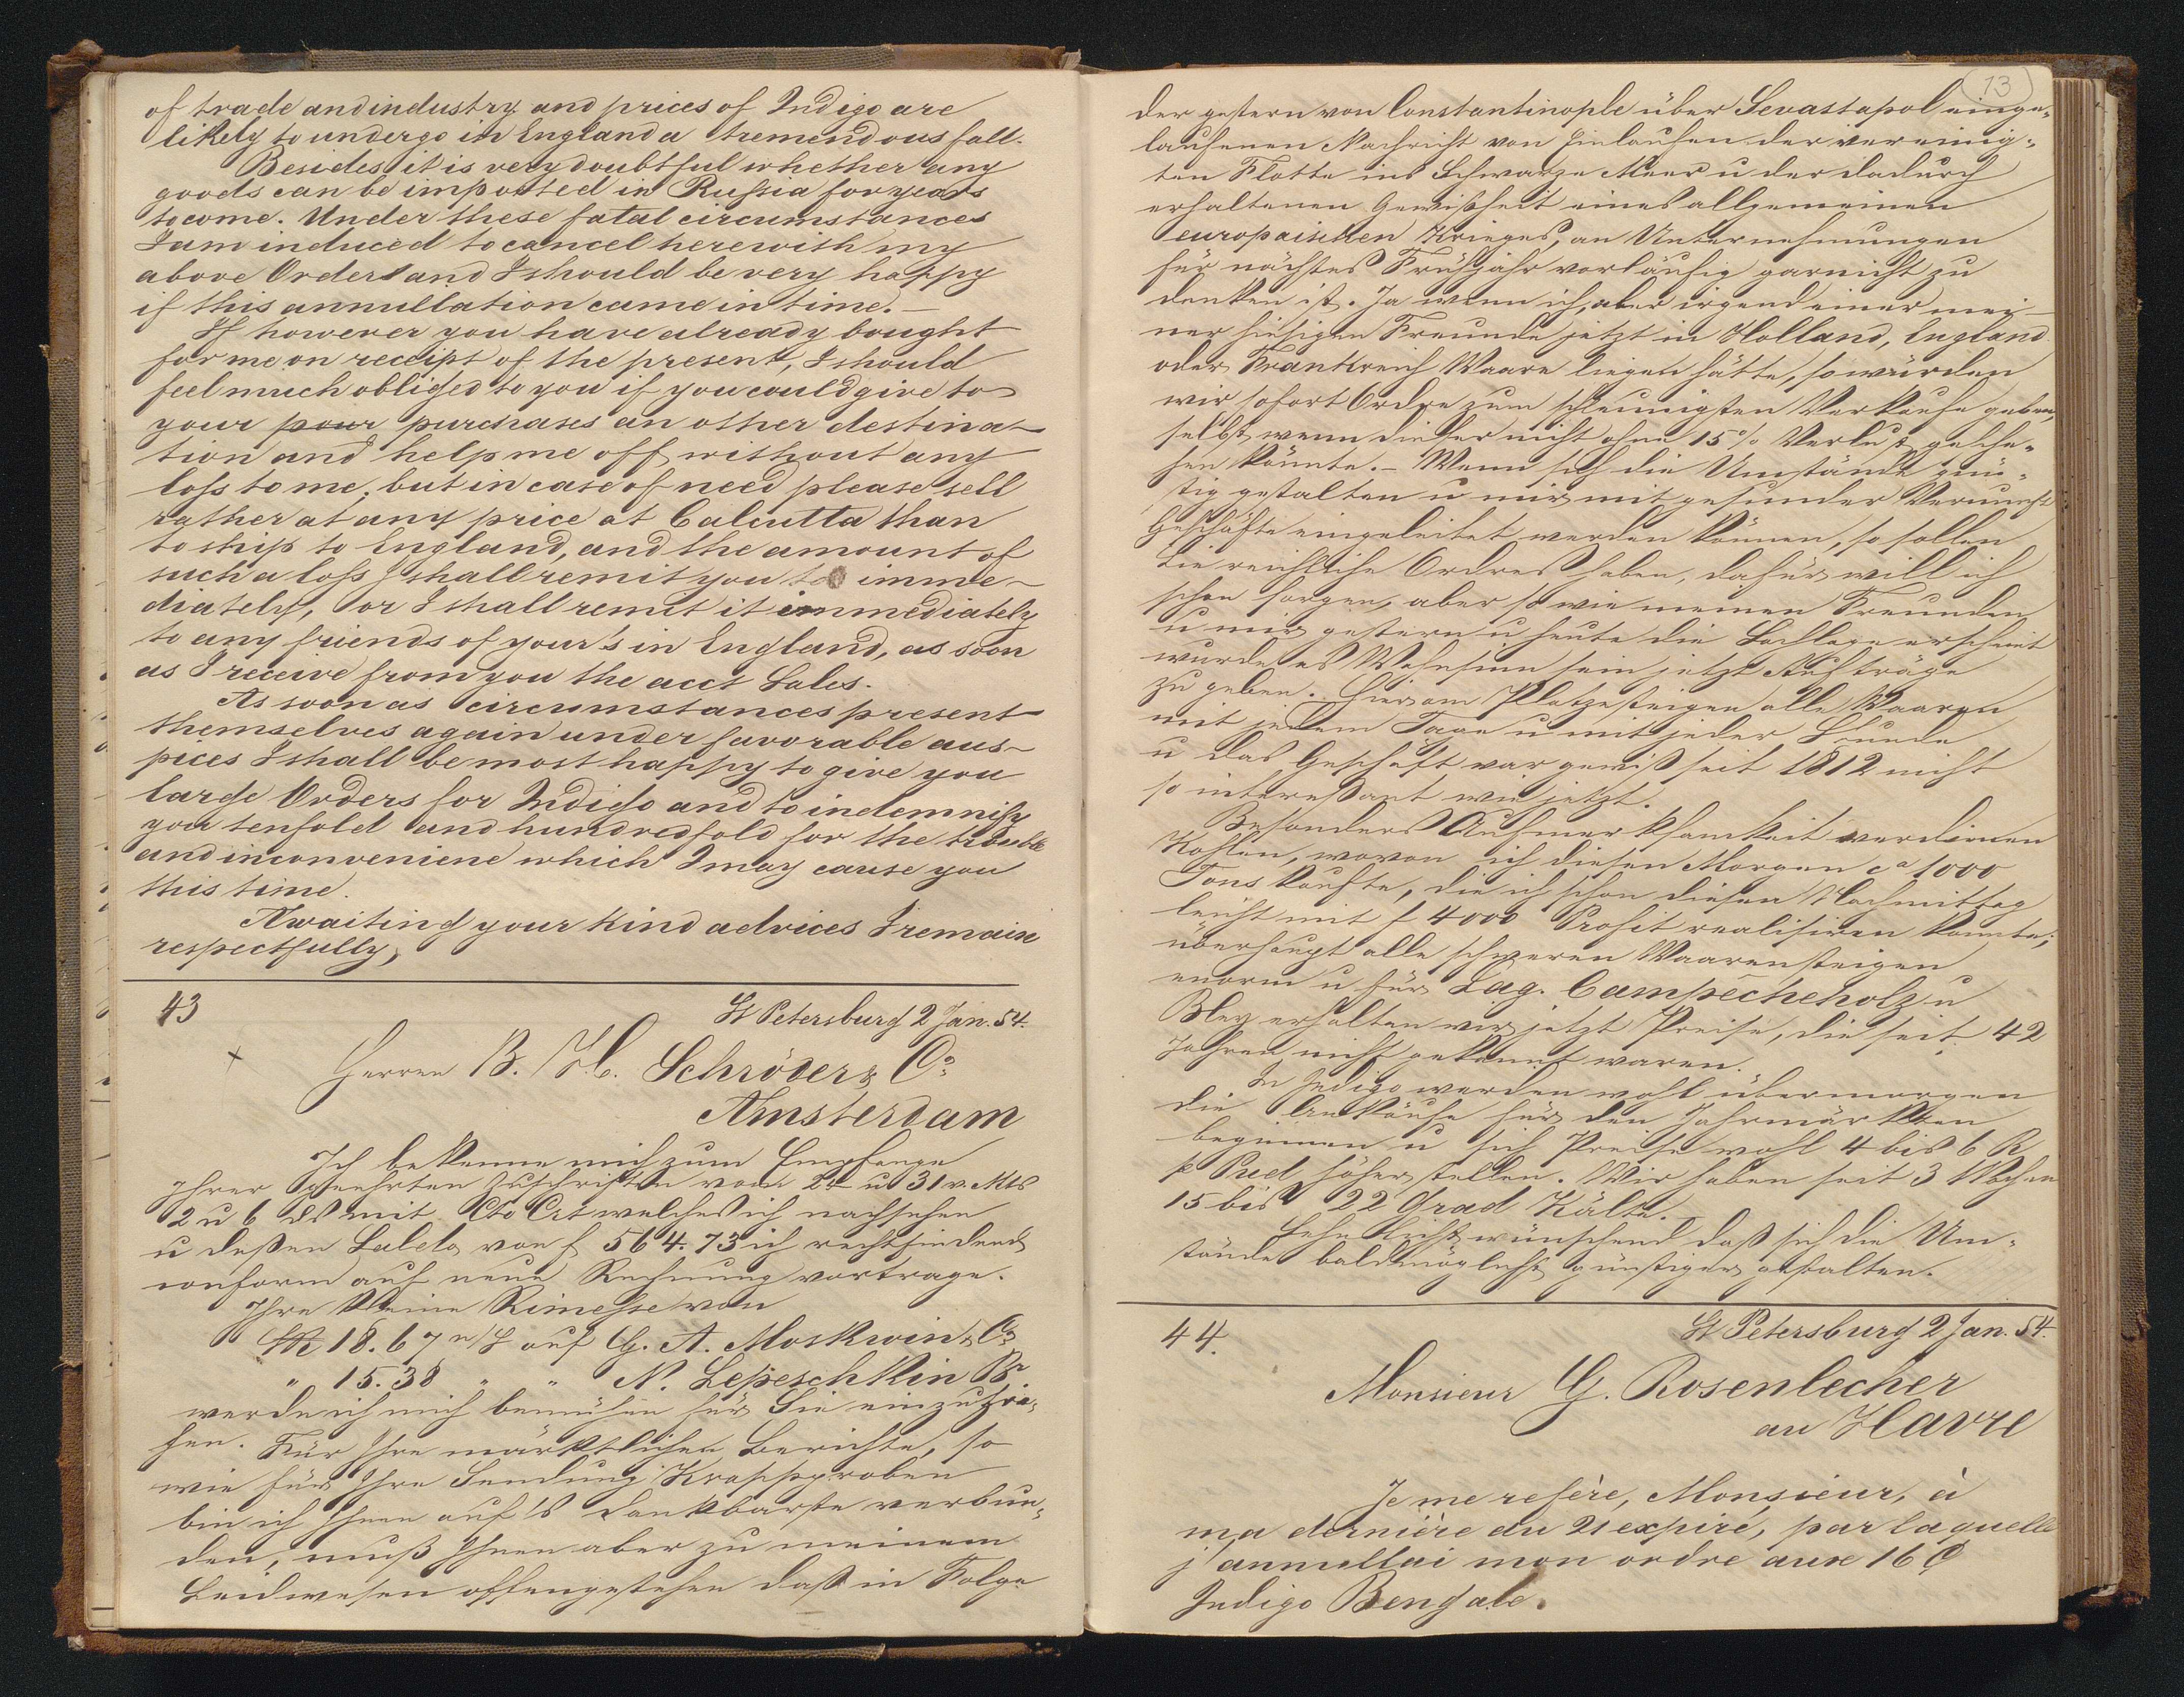 of trade and industry and prices of Indigo are
likely to undergo in England a tremendous fall.
Besides it is very doubtful whether any
goods can be imported in Russia for years
to come. Under these fatal circumstances
I am induced to cancel herewith my
above Orders and I should be very happy
if this annullation came in time. –
If however you have already bought
for me on receipt of the present, I should
feel much obliged to you if you could give to
your pour purchases an other destina-
tion and help me off without any
loss to me; but in case of need please sell
rather at any price at Calcutta than
to ship to England, and the amount of
such a loss I shall remit you imme-
diately, or I shall remit it immediately
to any friends of your's in England, as soon
as I receive from you the acct Sales.
As soon as circumstances present
themselves again under favorable aus-
pices I shall be most happy to give you
large Orders for Indigo and to indemnify
you tenfold and hundredfold for the trouble
and inconveniene which I may cause you
this time.
Awaiting your kind advices I remain
respectfully,
43 St Petersburg 2 Jan. 54.
+ Herren B. H. Schröder & Co
Amsterdam
Ich bekenne mich zum Empfange
Ihrer geehrten Zuschriften vom 24 u 31 v. Mts
2 u 6 ds mit Cto Crt welches ich nachsehen
u deßen Saldo von f 564.73 ich rechtfindend
conform auf neue Rechnung vortrage.
Ihre kleine Rimesse von
18.67 auf G. A. Moskwin & Co
" 15.38 " " N. Lepeschkin
werde ich mich bemühen für Sie einzuzie-
hen. Für Ihre märktlichen Berichte, so
wie für Ihre Sendung Krappproben
bin ich Ihnen auf's dankbarste verbun-
den, muß Ihnen aber zu meinem
Leidwesen offengestehen daß in Folge
13
der gestern von Constantinople über Sevastapol einge-
laufenen Nachricht von Einlaufen der vereinig-
ten Flotte ins Schwarze Meer u der dadurch
erhaltenen Gewißheit eines allgemeinen
europaischen Krieges, an Unternehmungen
für nächstes Frühjahr vorläufig garnicht zu
denken ist. Ja wenn ich, oder irgend einer mei-
ner hiesigen Freunde jetzt in Holland, England
oder Frankreich Waare liegen hätte, so würden
wir sofort Ordre zum schleunigsten Verkaufe geben,
selbst wenn dieser nicht ohne 15% Verlust gesche-
hen könnte. – Wenn sich die Umstände güns-
tig gestalten u nur mit gesunder Vernunft
Geschäfte eingeleitet werden können, so sollen
Sie reichliche Ordres haben, dafür will ich
schon sorgen, aber so wie meinen Freunden
u mir gestern u heute die Sachlage erscheint
wurde es Wahnsinn sein jetzt Aufträge
zu geben. Hier am Platze steigen alle Waaren
mit jedem Tage u mit jeder Stunde
u das Geschäft war gewiß seit 1812 nicht
so interessant wie jetzt.
Besonders Aufmerksamkeit verdienen
Kohlen, wovon ich diesen Morgen ca 1000
Tons kaufte, die ich schon diesen Nachmittag
leicht mit f 4000 Profit realisiren konnte;
überhaupt alle schweren Waaren steigen
enorm u für Lag. Campecheholz u
Bley erhalten wir jetzt Preise, die seit 42
Jahren nicht gekannt waren.
In Indigo werden wohl übermorgen
die Ankäufe für den Jahrmärkten
beginnen u sich Preise wohl 4 bis 6 R
p Pud höher stellen. Wir haben seit 3 Wochen
15 bis 22 Grad Kälte. –
Sehnlichst wünschend daß sich die Um-
stände baldmöglichst günstiger gestalten.
44. St Petersburg 2 Jan. 54.
Monsieur G. Rosenlecher
au Havre
Je me refère, Monsieur, à
ma dernière du 21 expiré, par laquelle
j'annullai mon ordre aux 16 C
Indigo Bengale.